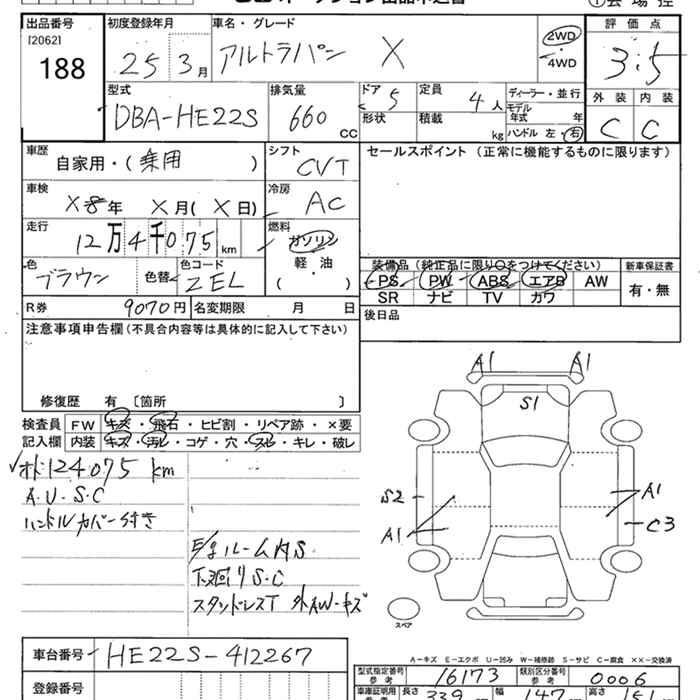 出品番号 初度登録年月 車名・グレード 評価点
[2062] 188 25年3月 アルトラパン X 2WD 4WD 3.5
型式 排気量 ドア 定員 ディーラー・並行 外装 内装
DBA-HE22S 660 CC 5 4人 モデル年式 年 C C
形状 積載 kg ハンドル 左・右
車歴 シフト セールスポイント (正常に機能するものに限ります)
自家用・(乗用) CVT
車検 冷房
X 年 X月(X日) AC
走行 燃料
12万4千075 km ガソリン
軽・油
(・)
色 色コード 装備品 (純正品に限り○をつけてください) 新車保証書
ブラウン 色替 ZEL PS PW ABS エアB AW 有・無
SR ナビ TV カワ
R券 9070円 名変期限 月 日 後日品
注意事項申告欄(不具合内容等は具体的に記入して下さい)
修復歴 有 〔箇所 〕
検査員 FW キズ・飛石・ヒビ割・リペア跡・×要
記入欄 内装 キズ・汚レ・コゲ・穴・スレ・キレ・破レ
オド124075 km
A・U・S・C
ハンドルカバー付き
ルーム内S
下廻りS・C
スタンドレスT 外AW-キズ
A1 A1
S1
S2 A1
A1 C3
スペア
車台番号 HE22S-412267
登録番号
A-キズ E-エクボ U-凹み W-補修跡 S-サビ C-腐食 ××-交換済
型式指定番号 参考 16173 類別区分番号 参考 0006
車庫証明用 参考 長さ 339 幅 147 高さ 151